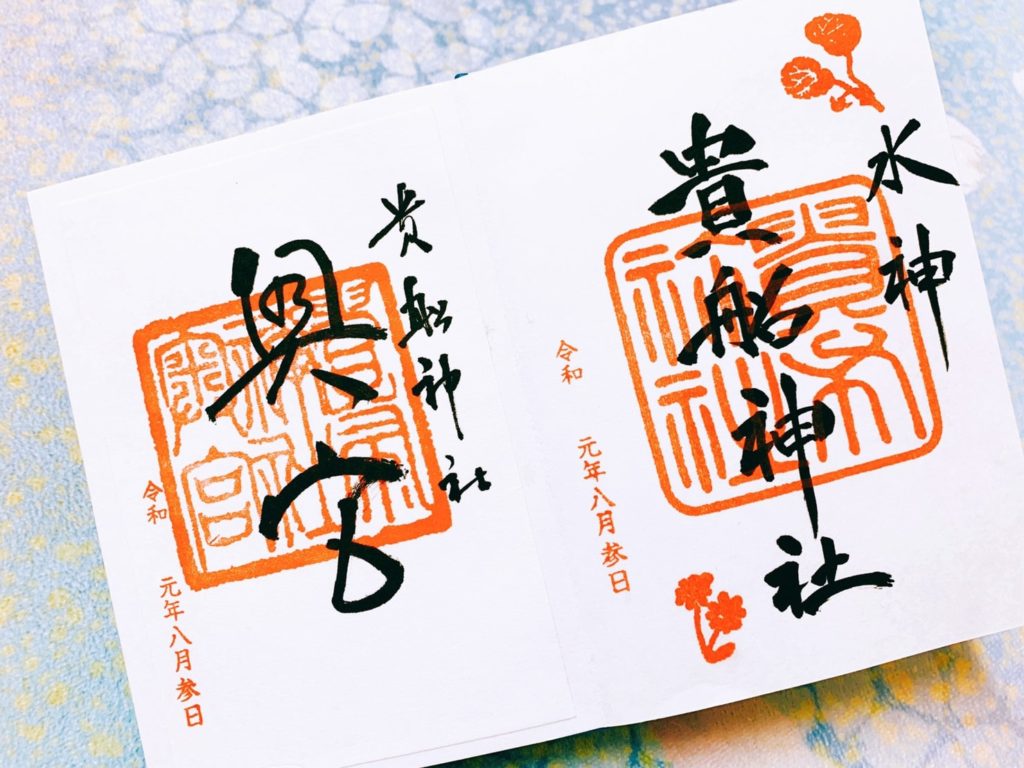 水神
貴船神社
令和
元年八月参日
貴船神社
奥宮
令和
元年八月参日